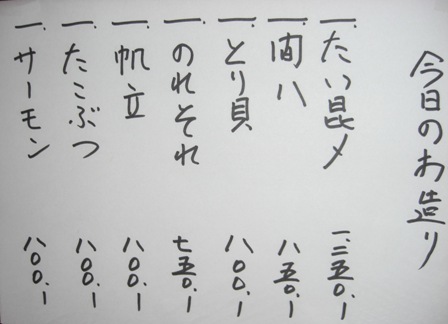 今日のお造り
一.たい昆〆 一.二五〇.ー
一.間八 八五〇.ー
一.とり貝 八〇〇.ー
一.のれそれ 七五〇.ー
一.帆立 八〇〇.ー
一.たこぶつ 八〇〇.ー
一.サーモン 八〇〇.ー